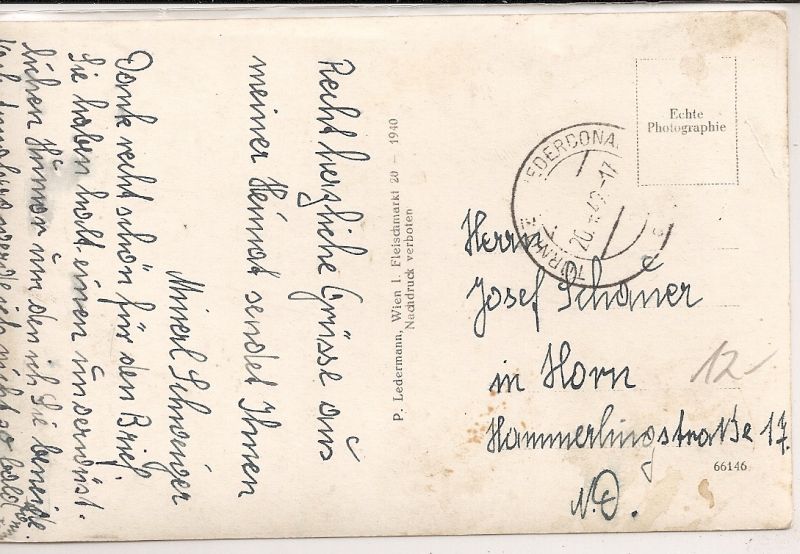 Recht herzliche Grüsse aus
meiner Heimat sendet Ihnen
Minerl Schweiger
Dank recht schön für den Brief
Sie haben halt einen unverwüst-
lichen Humor um den ich Sie beneide.
werde ich nicht so bald
P. Ledermann, Wien I. Fleischmarkt 20 — 1940
Nachdruck verboten
Echte
Photographie
EDERDONA
20.
-17
Herrn
Josef Schauer
in Horn
Hammerlingstraße 17.
N.D.
12-
66146